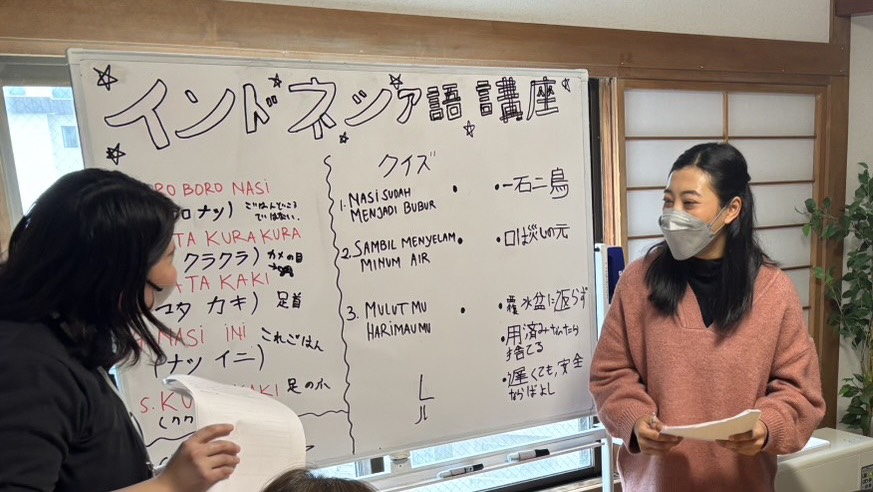 インドネシア語講座
ORO BORO NASI
ごはんどころ
ではない。
ナツ)
ATA KURA KURA
クラクラ) カメの目
ATA KAKI
カキ) 足首
NASI INI これごはん
(ナツ イニ)
5. KU AKI 足の
(クク
クイズ
1. NASI SUDAH
MENJADI BUBUR
2. SAMBIL MENYELAM
MINUM AIR
3. MULUTMU
HARIMAUMU
・一石二鳥
・口は災しの元
・覆水盆に返らず
・用済みなったら
捨てる
・遅くても、安全
ならばよし